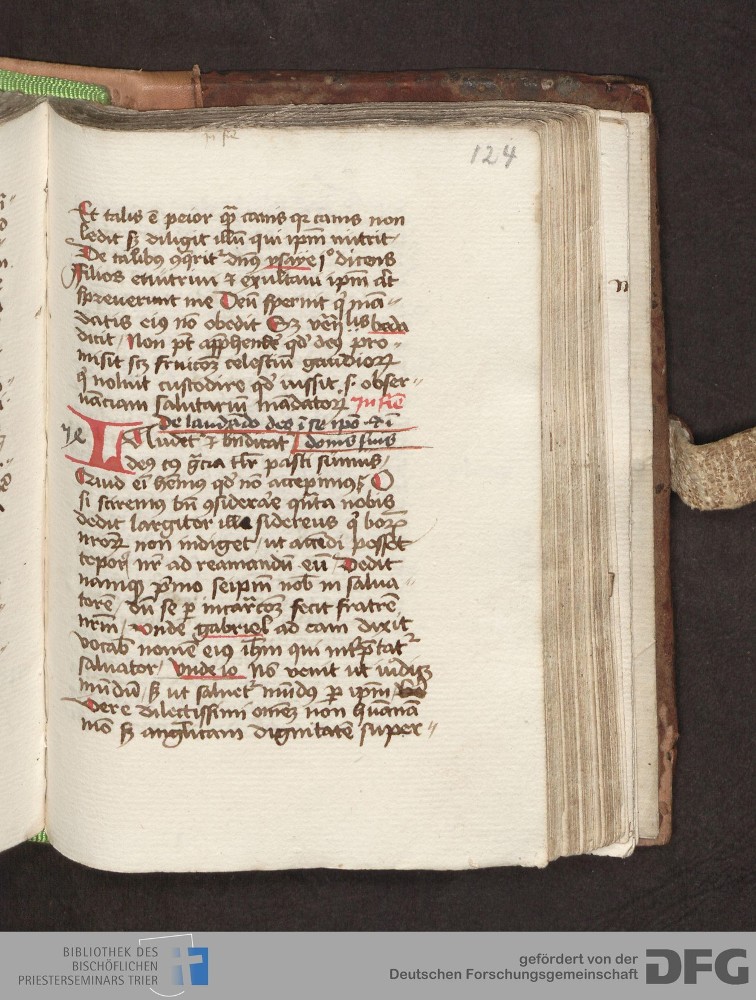 124
Et talis ē peior qͣ canis qꝛ canis non
ledit sꝫ diligit illū qui ipm̄ nutrit
De talibus dn̄s ysaye 1° dicens
Filios enutriui ⁊ exaltaui ipī aūt
spreuerunt me Deū spernit qͥ mā-
datis eiꝰ nō obedit beda
dicit / Non pt̄ app̄hende͛ qd̓ deꝰ pro-
misit scꝫ celestiū gaudioꝝ
qͥ noluit custodire qd̓ iussit .s. obser-
uanciam salutariū mādatoꝝ
De laudādo deo ī se ipō ⁊ ī
Laudet ⁊ bn̄dicat donis suis
deꝰ gͣcia pasti sumus
Quid ei hēmꝰ qd̓ nō accepimꝰ O
si sciremꝰ bn̄ ꝯsiderare qͣnta nobis
dedit largitor ille sidereus qͥ boꝝ
nr̄oꝝ non indiget / ut accēdi posset
tepoꝛ nr̄ ad reamandū eū / Dedit
namqꝫ pͥmo seipm̄ nob̄ in salua
torē / dū se ꝑ incar͛coꝫ fecit fratrē
nr̄m / Vnde gabriel ad eam dixit
vocab̄ nomē eiꝰ ih̄m qui int͛p̄tatᷣ
saluator / Vnde io Nō venit ut iudicꝫ
mūdū / sꝫ ut saluetᷣ mūdꝰ ꝑ ipm̄
Vere dilectissimi om̄es non hūanā
mō sꝫ angelicam dignitatē super-
BIBLIOTHEK DES
BISCHÖFLICHEN
PRIESTERSEMINARS TRIER
gefördert von der
Deutschen Forschungsgemeinschaft
DFG